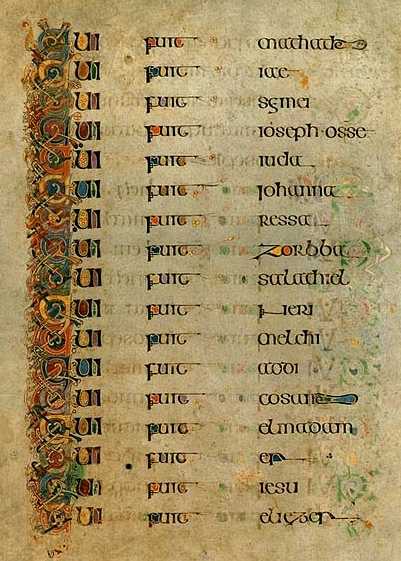 QUI fuit mathathie
QUI fuit iae
QUI fuit semei
QUI fuit ioseph osse
QUI fuit iuda
QUI fuit johanna
QUI fuit ressa
QUI fuit zorbba
QUI fuit salathiel
QUI fuit neri
QUI fuit melchi
QUI fuit addi
QUI fuit cosane
QUI fuit elmadam
QUI fuit er
QUI fuit iesu
QUI fuit eliezer